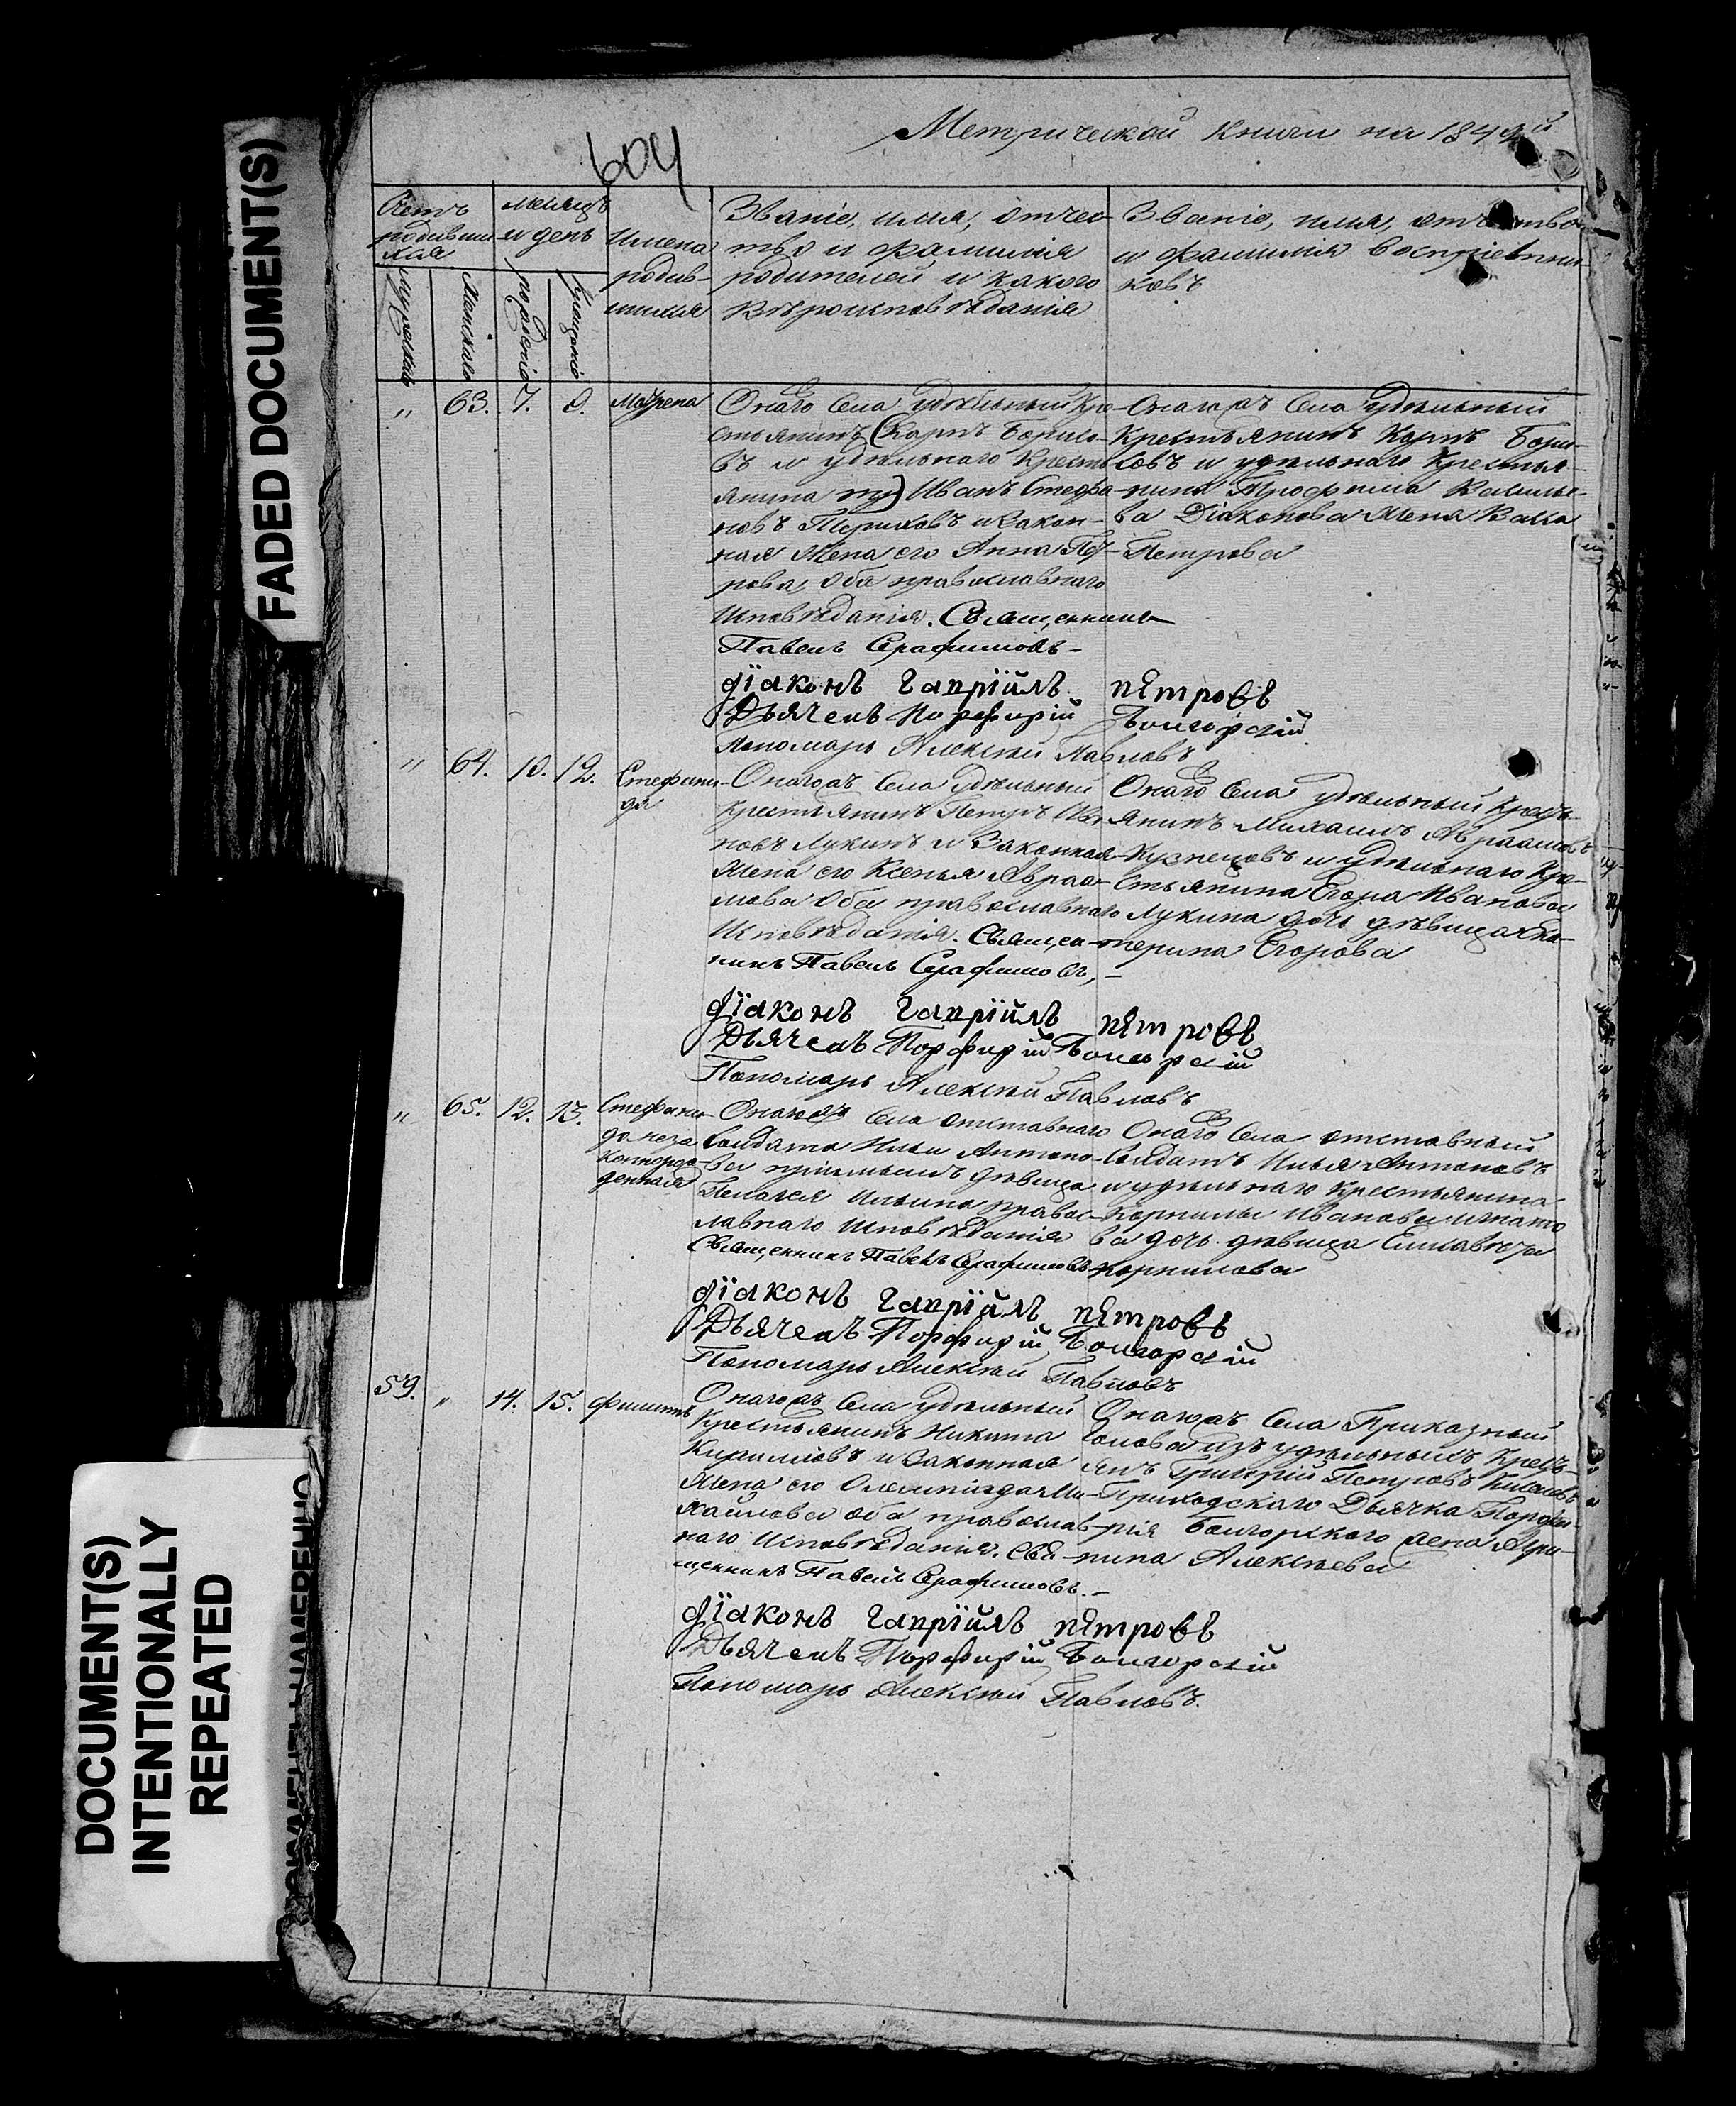 FADED DOCUMENT(S)
DOCUMENT(S)
INTENTIONALLY
REPEATED
604
Метрической книги на 1849й
Счетъ родившихся
Мужескаго
Женскаго
месяцъ и день
рожденія
крещенія
Имена
родив-
шихся
Званіе, имя, отчес-
тво и фамилія
родителей и какого
вѣроисповѣданія
Званіе, имя, отчество
и фамилія воспріемни-
ковъ
" 63. 7. 9. Матрена
Онаго Села удѣльный Кре-
стьянинъ (Карпъ Борисо-
въ и удѣльнаго Кресть
янина Иванъ Стефа-
новъ и закон-
ная Жена его Анна Пет-
рова, оба православнаго
Исповѣданія. Священникъ
Павелъ Серафимовъ
Онагожъ Села удѣльный
Крестьянинъ Карпъ Бори-
совъ и удѣльнаго Крестья-
нина Трофима Василье-
ва Діаконова Жена Васса
Петрова
діаконъ гавріилъ пѣтровъ
Дьячекъ Порфирій Боигорскій
Пономарь Алексѣй Павловъ
" 64. 10. 12. Стефани-
да
Онагожъ Села удѣльный
Крестьянинъ Петръ Ива
новъ Лукинъ и Законная
Жена его Ксенья Авраа-
мова оба православнаго
Исповѣданія. Священ-
никъ Павелъ Серафимовъ,
Онаго Села удѣльный Кресть-
янинъ Михаилъ Авраамовъ
Кузнецовъ и удѣльнаго Кре-
стьянина Егора Иванова
Лукина дочь дѣвица Ека-
терина Егорова
діаконъ гавріилъ пѣтровъ
Дьячекъ Порфирій Боигорскій
Пономарь Алексѣй Павловъ
" 65. 12. 13. Стефани-
да неза
коннорож-
денная
Онагожъ Села отставнаго
Солдата Ильи Антоно-
ва дѣвица
Пелагея Ильина правос-
лавнаго Исповѣданія
Священникъ Павелъ Серафимовъ
Онаго Села отставный
Солдатъ Илья Антоновъ
и удѣльнаго Крестьянина
Корнилы Иванова Игнато
ва дочь дѣвица Елисавета
Корнилова
діаконъ гавріилъ пѣтровъ
Дьячекъ Порфирій Боигорскій
Пономарь Алексѣй Павловъ
59. " 14. 15. Филиппъ
Онагожъ Села удѣльный
Крестьянинъ Никита
Кирилловъ и Законная
Жена его Олимпіада Ми-
хайлова оба православ-
наго Исповѣданія. Свя-
щенникъ Павелъ Серафимовъ.
Онагожъ Села Приказный
Голова изъ удѣльныхъ Кресть-
янъ Григорій Петровъ
Приходскаго Дьячка Порфи-
рія Боигорскаго жена Агри-
пина Алексѣева
діаконъ гавріилъ пѣтровъ
Дьячекъ Порфирій Боигорскій
Пономарь Алексѣй Павловъ.